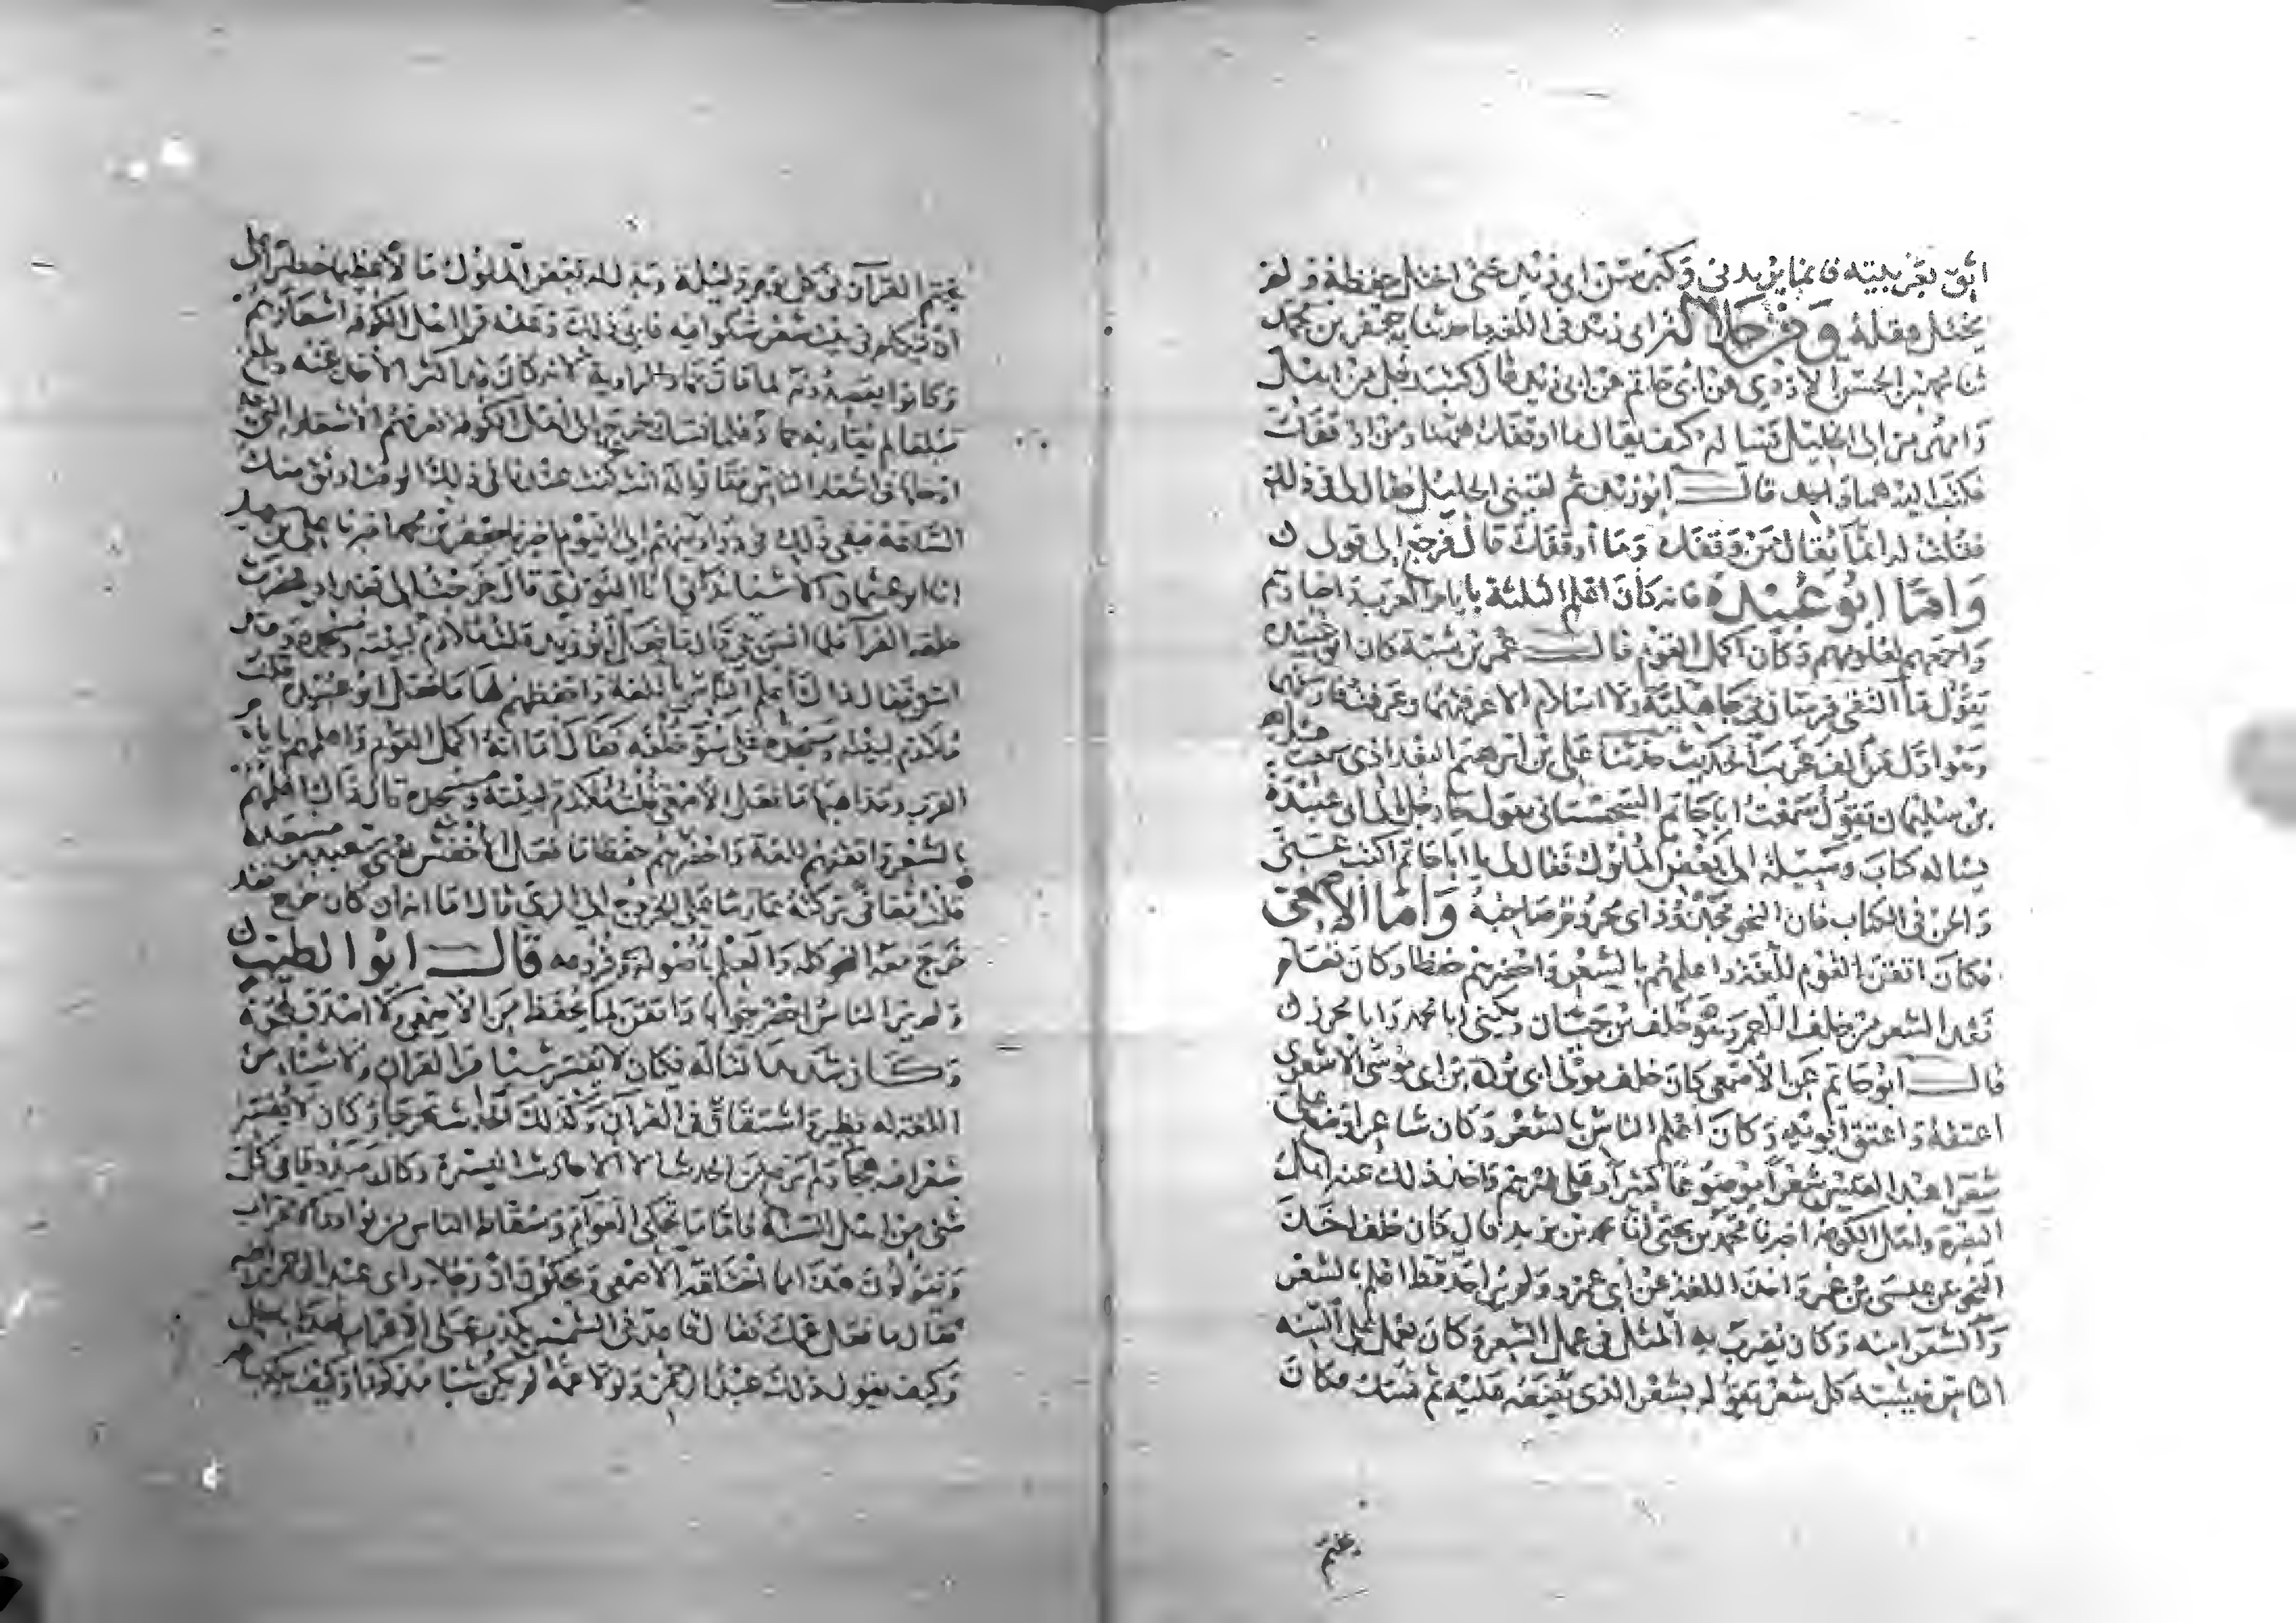 اثق بعربيته فانما يريدني وكبر سن ابي زيد حتى اختل حفظه ولم
يختل عقله ومن جلالة ابي زيد في اللغة ما حدثنا به جعفر بن محمد
ثنا محمد بن الحسن الازدي عن ابي حاتم عن ابي زيد قال كتب رجل من اهل
رامهرمز الى الخليل يسأله كيف يقال ما اوقفك ههنا ومن اوقفك
فكتب اليه هما واحد قال ابو زيد ثم لقيني الخليل فقال لي في ذلك
فقلت له انما يقال من وقفك وما أوقفك قال فرجع إلى قولي
وَامّا ابُو عُبَيْدة فانه كان اعلم الثلثة بايام العرب واخبارهم
واجمعهم لعلومهم وكان اكمل القوم قال عمر بن شبة كان ابو عبيدة
يقول ما التقى فرسان في جاهلية ولا اسلام الا عرفتهما وعرفت فارسيهما
وهو اول من الف غريب الحديث حدثنا علي بن ابرهيم البغدادي سمعت عبد الله
بن سليمان يقول سمعت ابا حاتم السجستاني يقول جاء رجل الى ابي عبيدة
يسأله كتاب وسيلة الى بعض الملوك فقال لي يا ابا حاتم اكتب عني
والحن في الكتاب فان النحو محدود اي محروم صاحبه وَامّا الأصمعي
فكان اتقن القوم للغة واعلمهم بالشعر واحضرهم حفظا وكان تعلم
نقد الشعر من خلف الاحمر وهو خلف بن حيان ويكنى ابا محمد وابا محرز
قال ابو حاتم عن الأصمعي كان خلف مولى ابي بردة بن ابي موسى الأشعري
اعتقه واعتق ابويه وكان اعلم الناس بالشعر وكان شاعرا وضع على
شعراء عبد القيس شعرا موضوعا كثيرا وعلى غيرهم واخذ ذلك عنه اهل
البصرة واهل الكوفة اخبرنا محمد بن يحيى انا محمد بن يزيد قال كان خلف اخذ
النحو عن عيسى بن عمر واخذ اللغة عن أبي عمرو ولم ير احد قط اعلم بالشعر
والشعراء منه وكان يضرب به المثل في عمل الشعر وكان يعمل على السنة
الناس فيشبه كل شعر يقوله بشعر الذي يضعه عليه ثم نسك فكان
يختم القرآن في كل يوم وليلة وبذل له بعض الملوك مالا عظيما خطيرا على
ان يتكلم في بيت شعر شكوا فيه فابى ذلك وعليه قرأ اهل الكوفة اشعارهم
وكانوا يقصدونه لما مات حماد الراوية لانه كان قد اكثر الأخذ عنه وبلغ
مبلغا لم يقاربه حماد فلما نسك خرج إلى اهل الكوفة فعرفهم الأشعار التي
ادخلها في اشعار الناس فقالوا له انت كنت عندنا في ذلك الوقت اوثق منك
الساعة فبقي ذلك في دواوينهم إلى اليوم اخبرنا جعفر بن محمد اخبرنا علي بن سهل
انا ابو عثمان الاشنانداني انا التوزي قال خرجت إلى بغداد فحضرت
حلقة الفراء فلما انس بي قال ما فعل أبو زيد قلت ملازم لبيته ومسجده وقد
اسن فقال ذاك أعلم الناس باللغة واحفظهم لها ما فعل ابو عبيدة قلت
ملازم لبيته ومسجده على سوء خلقه فقال أما انه اكمل القوم واعلمهم بايام
العرب ومذاهبها ما فعل الاصمعي قلت ملازم لبيته ومسجده قال ذاك اعلمهم
بالشعر واتقنهم للغة واحضرهم حفظا ما فعل الأخفش يعني سعيد بن مسعدة
قلت معافى تركته عازما على الخروج إلى الري قال اما انه ان كان خرج فقد
خرج معه النحو كله والعلم بأصوله وفروعه قال ابُو الطيب
ولم ير الناس احضر جوابا واتقن لما يحفظ من الأصمعي ولا اصدق لهجة
وكان شديد التأله فكان لا يفسر شيئا من القرآن ولا شيئا من
اللغة له نظير او اشتقاق في القرآن وكذلك الحديث تحرجا وكان لا يفسر
شعرا فيه هجاء ولم يرفع من الحديث الا الاحاديث اليسيرة وكان صدوقا في كل
شيء من اهل السنة فاما ما يحكي العوام وسقاط الناس من نوادر الاعراب
ويقولون هذا مما اختلقه الأصمعي ويحكون ان رجلا رأى عبد الرحمن ابن اخيه
فقال ما فعل عمك فقال قاعد في الشمس يكذب على الاعراب فهذا باطل
وكيف يقول ذلك عبد الرحمن ولولا عمه لم يكن شيئا مذكورا وكيف يكذب